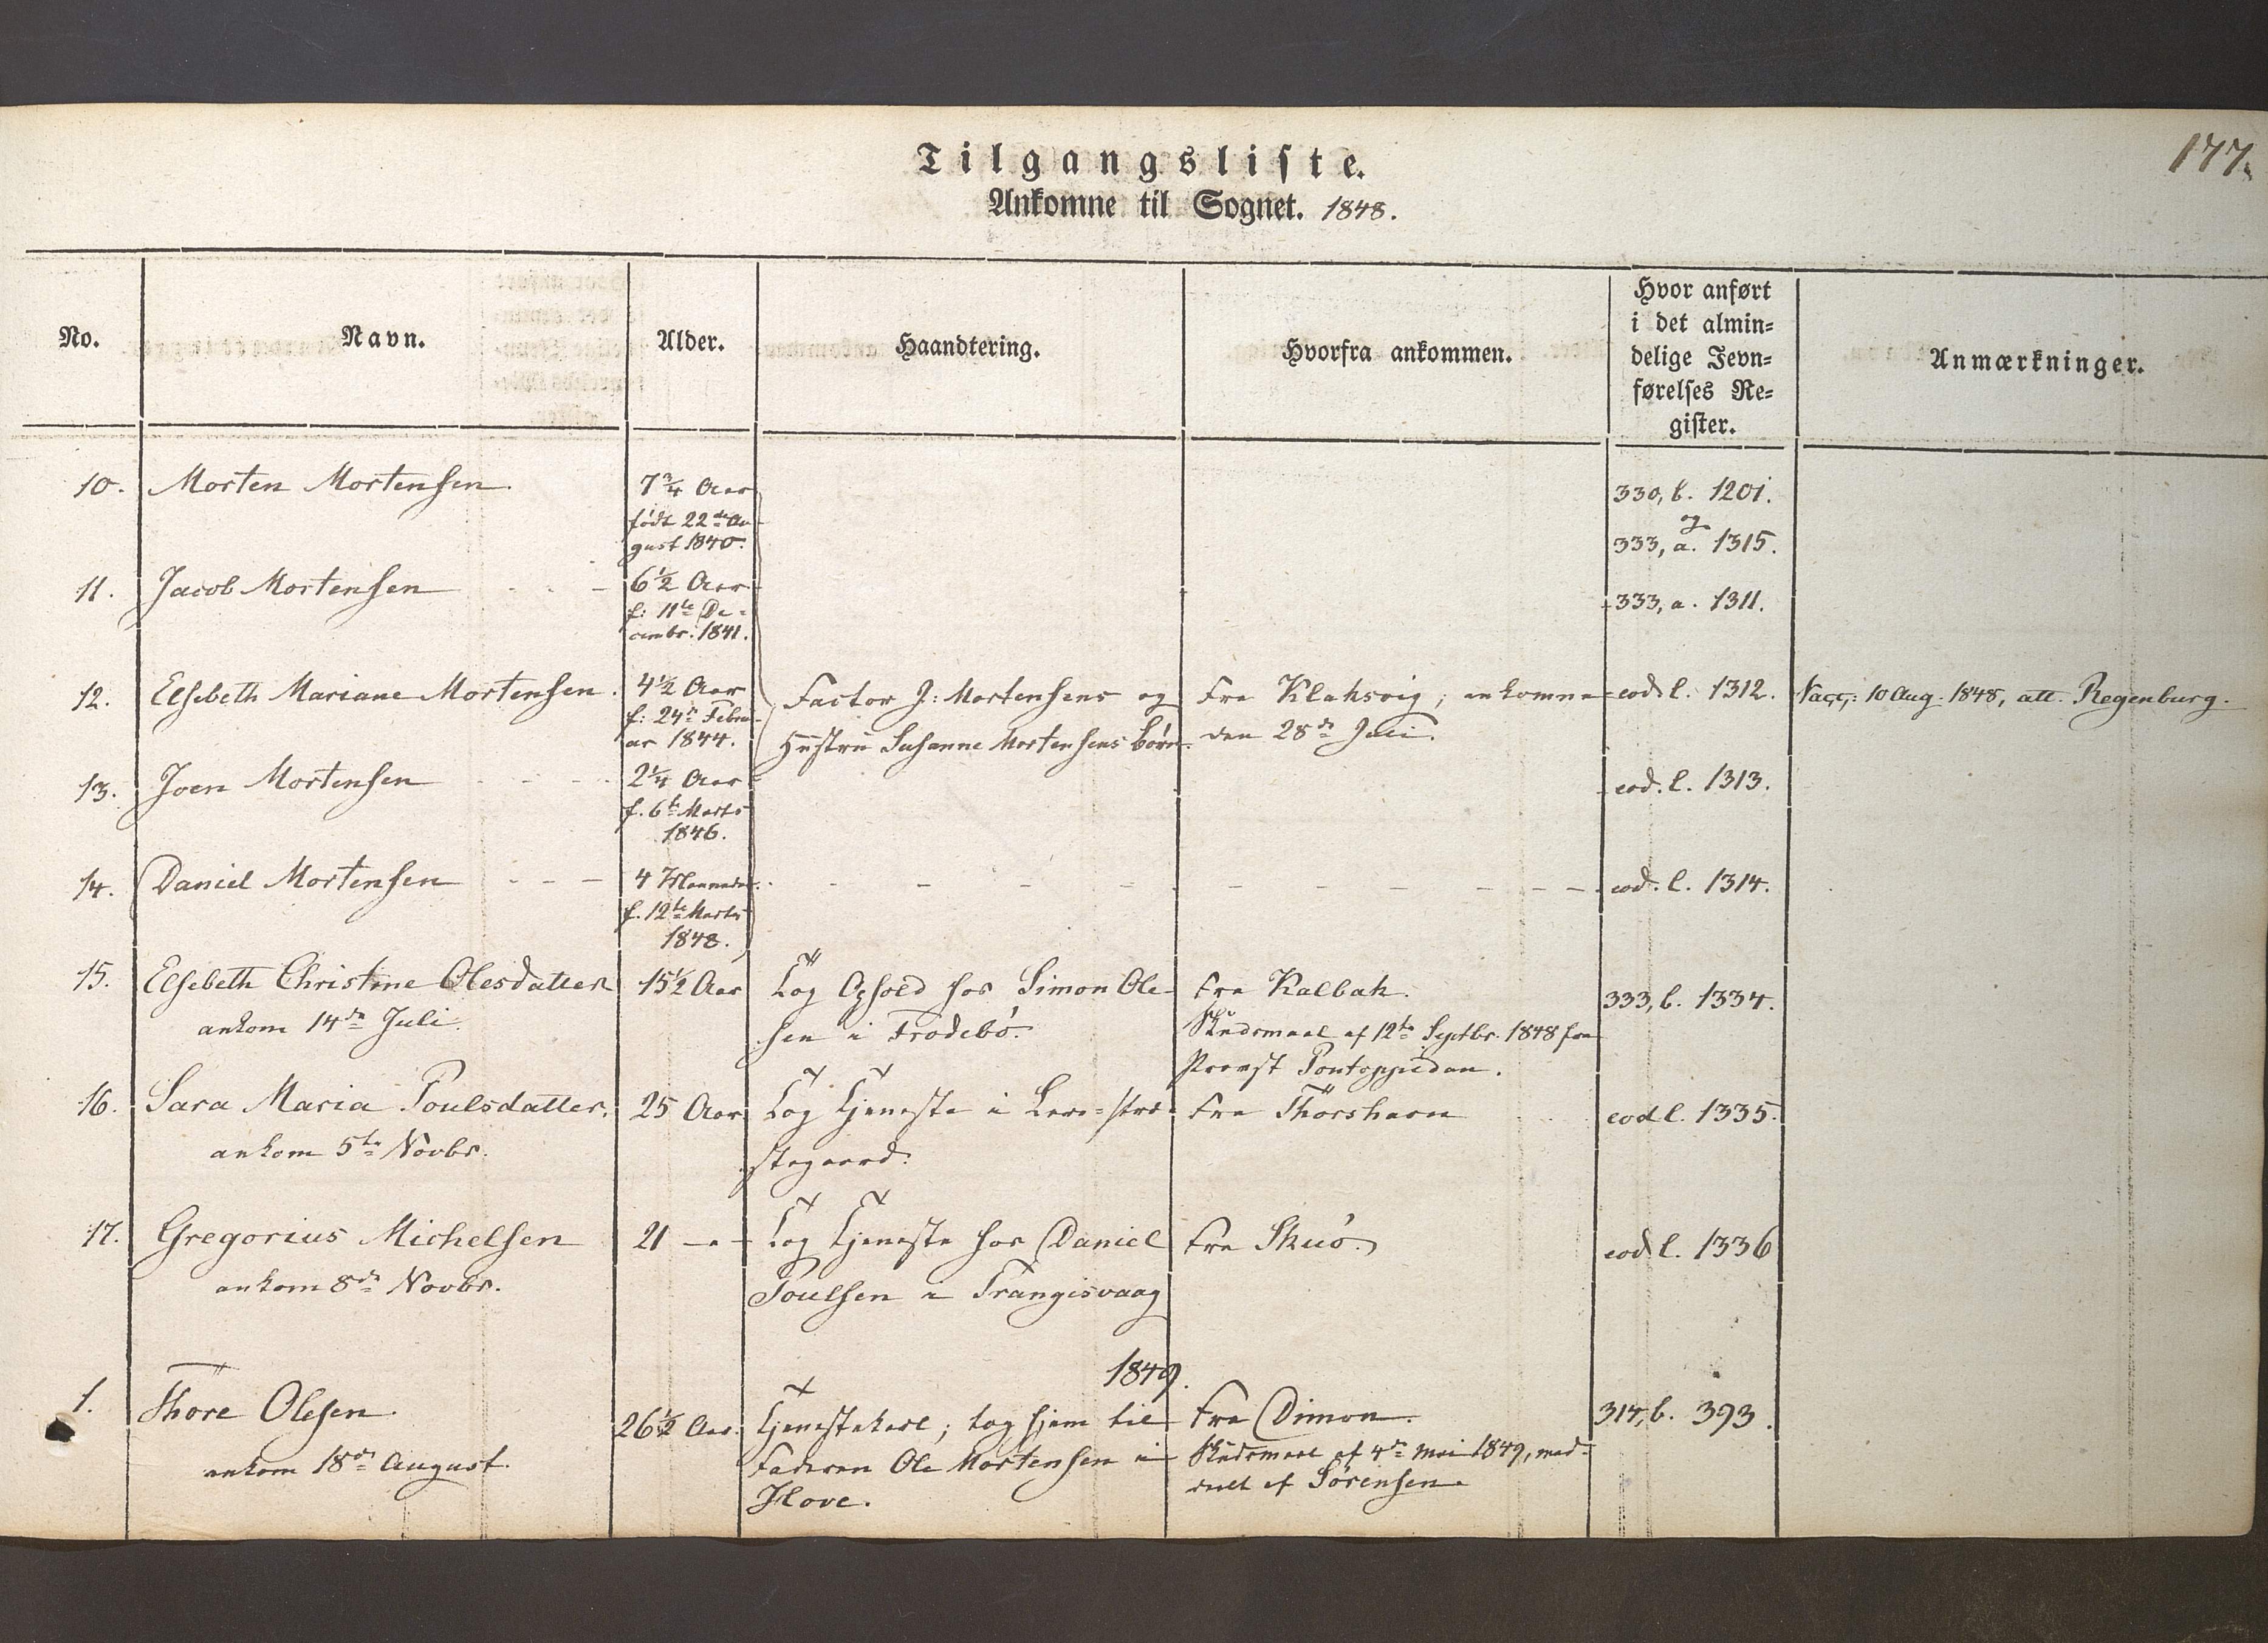 177.
Tilgangsliste.
Ankomne til Sognet. 1848.
No.
Navn.
Alder.
Haandtering.
Hvorfra ankommen.
Hvor anført
i det almin=
delige Jevn=
førelses Re=
gister.
Anmærkninger.
10. Morten Mortensen. 7¾ Aar 330, b. 1201.
født 22de Au- og
gust 1840. 333, a. 1315.
11. Jacob Mortensen 6½ Aar 333, a. 1311.
f: 11te De-
cembr. 1841.
12. Elsebeth Mariane Mortensen. 4½ Aar Factor J: Mortensens og Fra Klaksvig; ankomne eod. l. 1312. Vacc: 10 Aug. 1848, att. Regenburg.
f: 24de Febru- Hustru Susanne Mortensens Børn. den 28de Juli.
ar 1844.
13. Joen Mortensen 2¼ Aar eod. l. 1313.
f. 6te Marts
1846.
14. Daniel Mortensen 4 Maaneder. eod. l. 1314.
f. 12te Marts
1848.
15. Elsebeth Christine Olesdatter 15½ Aar Tog Ophold hos Simon Ole- Fra Kalbak. 333, b. 1334.
ankom 14de Juli. sen i Frodebö. Skudsmaal af 12te Septbr. 1848 fra
Provst Pontoppidan.
16. Sara Maria Poulsdatter. 25 Aar Tog Tjeneste i Fra Thorshavn eod l. 1335.
ankom 5te Novbr. stegaard.
17. Gregorius Michelsen 21 — " — Tog Tjeneste hos Daniel Fra Skuö. eod l. 1336
ankom 8de Novbr. Poulsen i Trangisvaag
1849.
1. Thore Olesen. 26½ Aar. Tjenestekarl; tog hjem til Fra Dimon. 314, b. 393.
ankom 18de August. Faderen Ole Mortensen i Skudsmaal af 4de Mai 1849, med-
Hove. deelt af Sörensen.